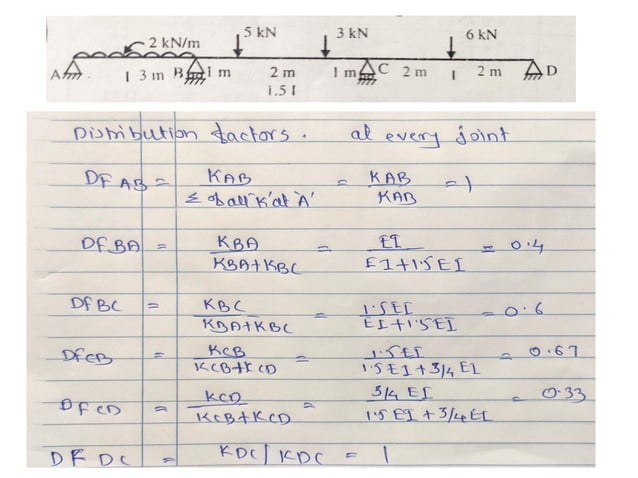 2 kN/m 5 kN 3 kN 6 kN
A I 3 m B 1 m 2 m 1 m C 2 m I 2 m D
1.5 I
Distribution factors. at every joint
DF AB = KAB / Σ of all 'K' at 'A' = KAB / KAB = 1
DF BA = KBA / KBA+KBC = EI / EI+1.5EI = 0.4
DF BC = KBC / KBA+KBC = 1.5EI / EI+1.5EI = 0.6
DF CB = KCB / KCB+KCD = 1.5EI / 1.5EI+3/4 EI = 0.67
DF CD = KCD / KCB+KCD = 3/4 EI / 1.5 EI+3/4 EI = 0.33
DF DC = KDC / KDC = 1